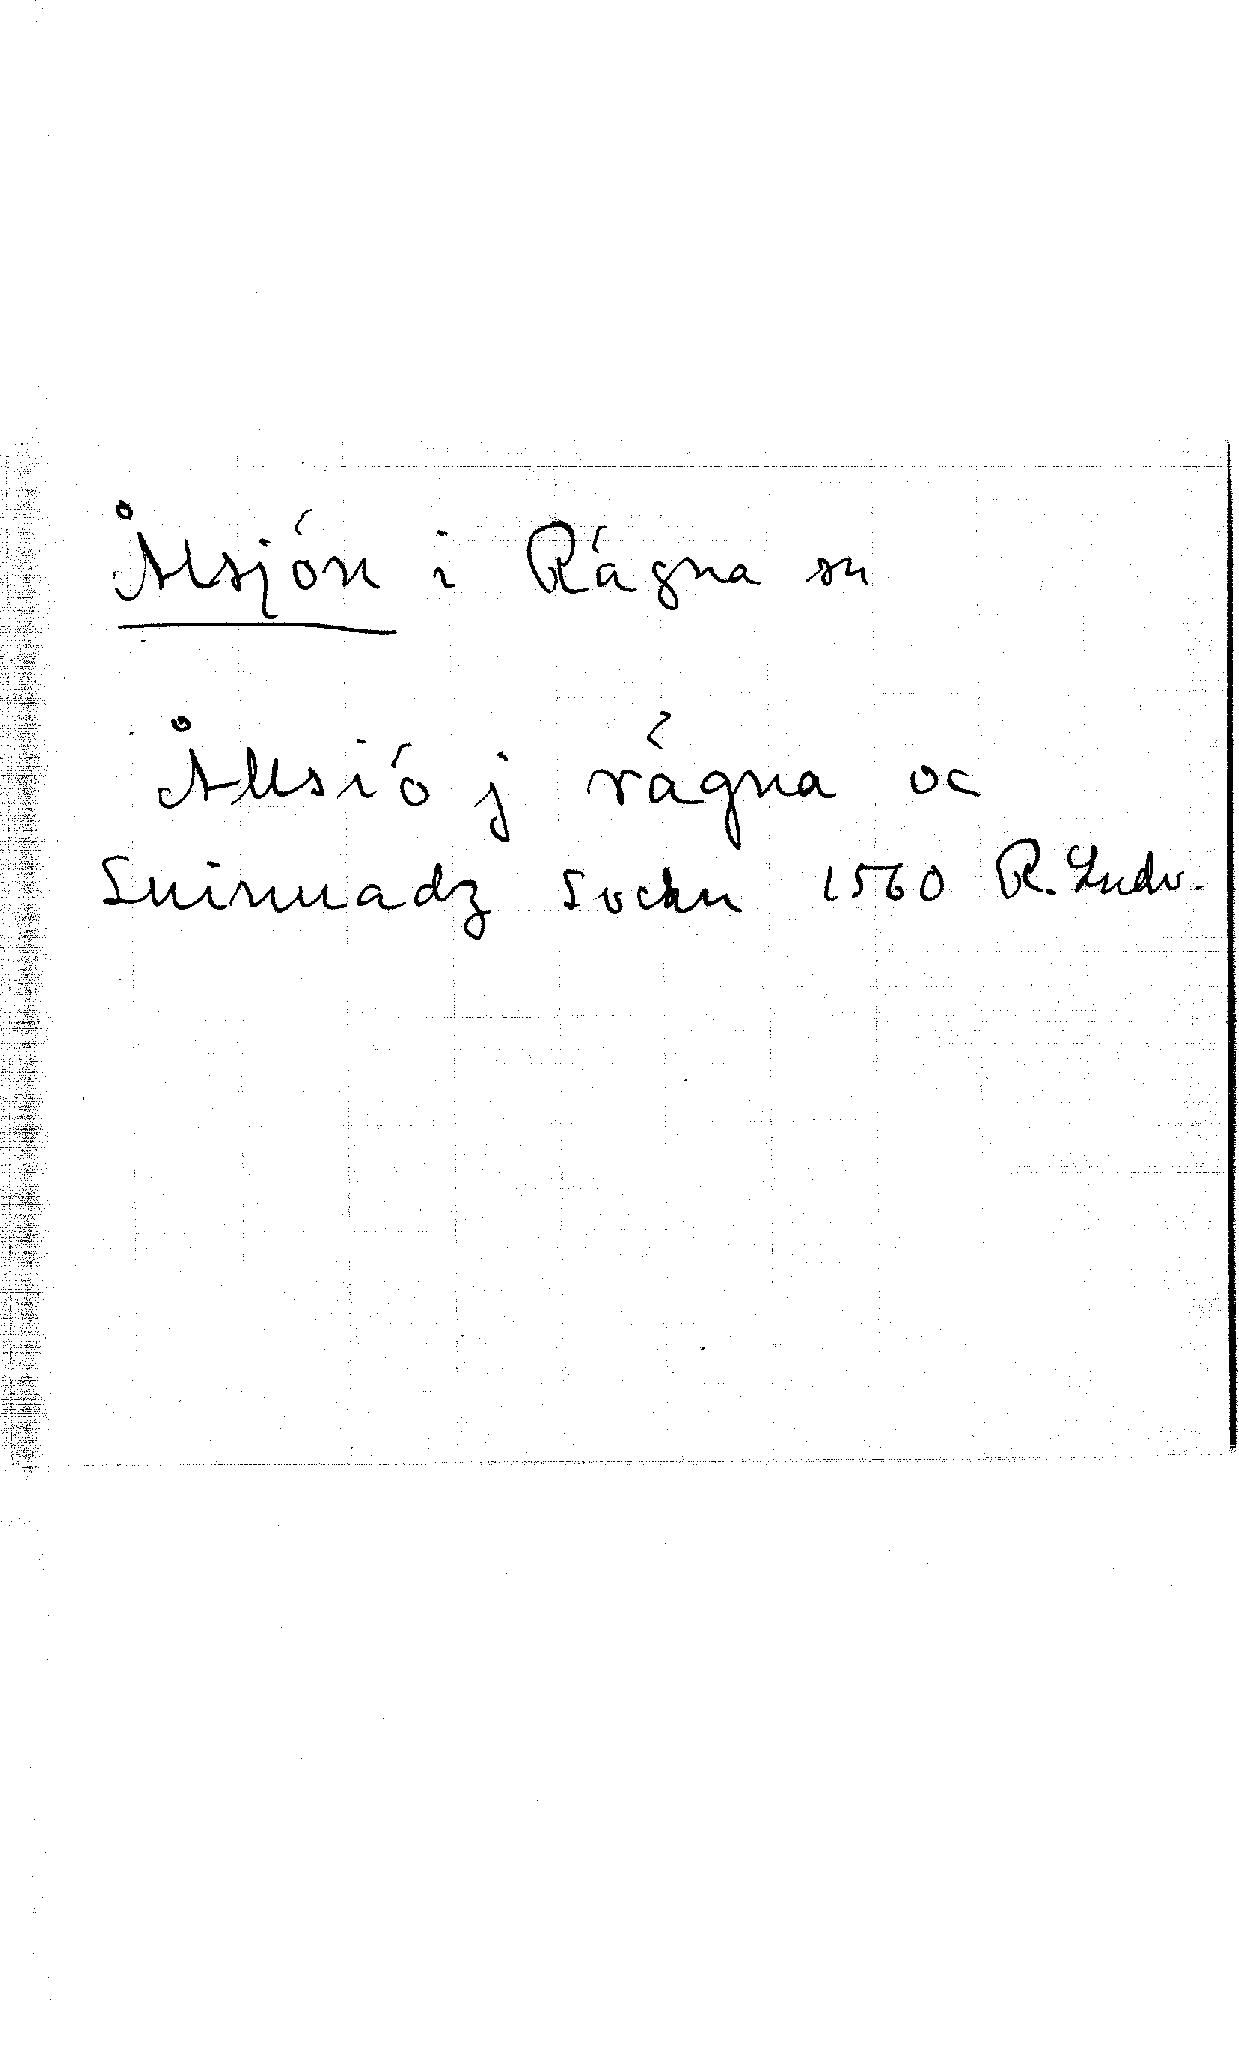 Ålsjön i Rägna sn
Ållsiö j rägna oc
Suinuadz Sockn 1560 R. Ludv.